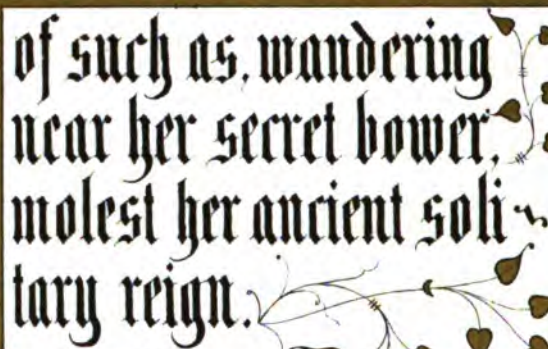 of such as, wandering
near her secret bower,
molest her ancient soli
tary reign.